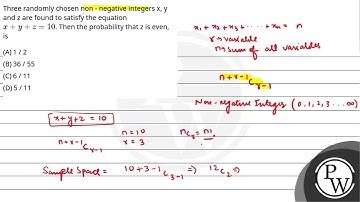 Three randomly chosen non - negative integers x, y
and z are found to satisfy the equation
x + y + z = 10. Then the probability that z is even,
is
(A) 1 / 2
(B) 36 / 55
(C) 6 / 11
(D) 5 / 11
x₁ + x₂ + x₃ + ······ + xₙ = n
r → variable
n → sum of all variables
n+r-1Cr-1
Non-negative Integer (0, 1, 2, 3 ... ∞)
x+y+z = 10
n = 10
r = 3
n+r-1Cr-1
nCr = n!
Sample Space = 10+3-1C3-1 ⇒ 12C2 ⇒
PW